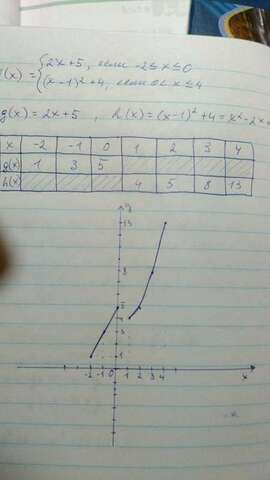 (x) = { 2x+5, если -2≤x≤0
(x-1)²+4, если 0<x≤4
g(x) = 2x+5 , h(x) = (x-1)²+4 = x²-2x+
x -2 -1 0 1 2 3 4
g(x) 1 3 5
h(x) 4 5 8 13
y
13
8
5
4
3
1
-2 -1 0 1 2 3 4 x